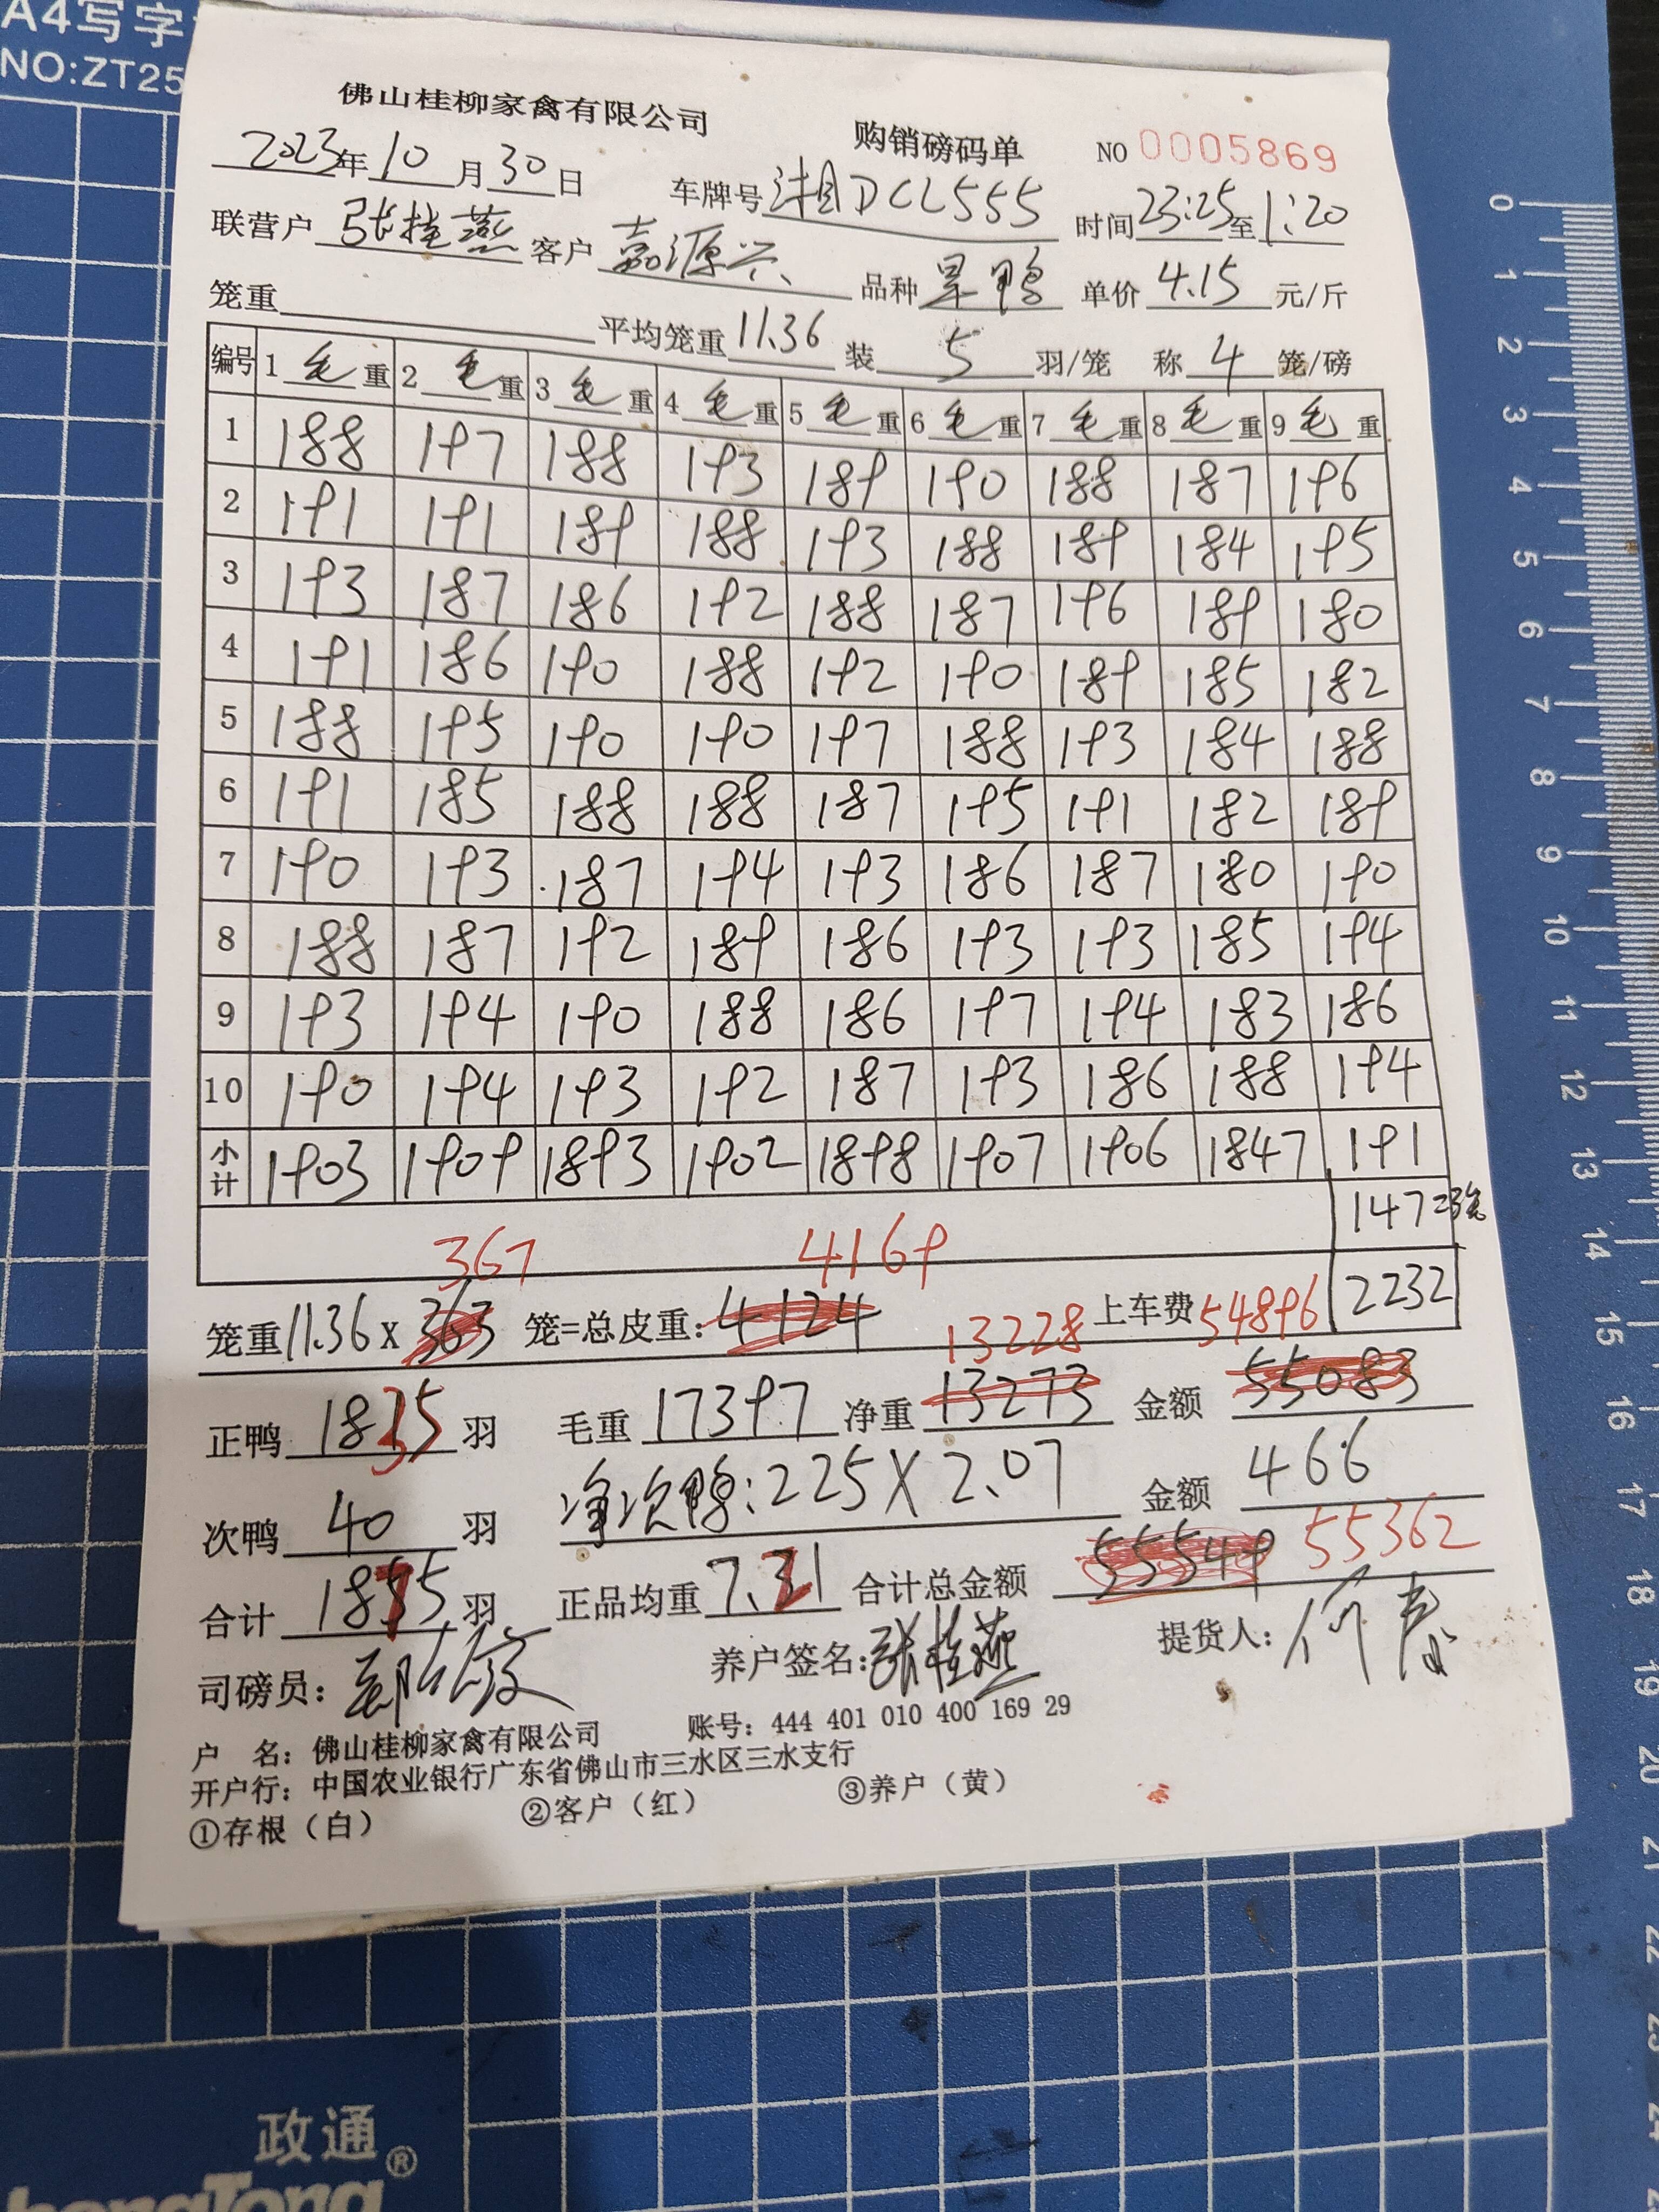 A4写字
NO:ZT25
佛山桂柳家禽有限公司
购销磅码单 NO 0005869
2023年10月30日 车牌号 湘DCL555 时间23:25至1:20
联营户 张桂燕 客户 嘉源兴 品种 旱鸭 单价 4.15 元/斤
笼重 平均笼重 11.36 装 5 羽/笼 称 4 笼/磅
编号 1 毛 重 2 毛 重 3 毛 重 4 毛 重 5 毛 重 6 毛 重 7 毛 重 8 毛 重 9 毛 重
1 188 197 188 193 189 190 188 187 196
2 191 191 189 188 193 188 189 184 195
3 193 187 186 192 188 187 196 189 180
4 191 186 190 188 192 190 189 185 182
5 188 195 190 190 197 188 193 184 188
6 191 185 188 188 187 195 191 182 189
7 190 193 187 194 193 186 187 180 190
8 188 187 192 189 186 193 193 185 194
9 193 194 190 188 186 197 194 183 186
10 190 194 193 192 187 193 186 188 194
小计 1903 1909 1893 1902 1898 1907 1906 1847 191
147=3笼
367 4169
笼重11.36 x 363 笼=总皮重: 4124 上车费 2232
13228 54896
正鸭 1835 羽 毛重 17397 净重 13273 金额 55083
次鸭 40 羽 净次鸭:225 X 2.07 金额 466
合计 1875 羽 正品均重 7.21 合计总金额 55549 55362
司磅员: 养户签名:张桂燕 提货人:
户 名: 佛山桂柳家禽有限公司 账号: 444 401 010 400 169 29
开户行: 中国农业银行广东省佛山市三水区三水支行
①存根(白) ②客户(红) ③养户(黄)
0
1
2
3
4
5
6
7
8
9
10
11
12
13
14
15
16
17
18
19
20
21
22
23
24
25
政通®